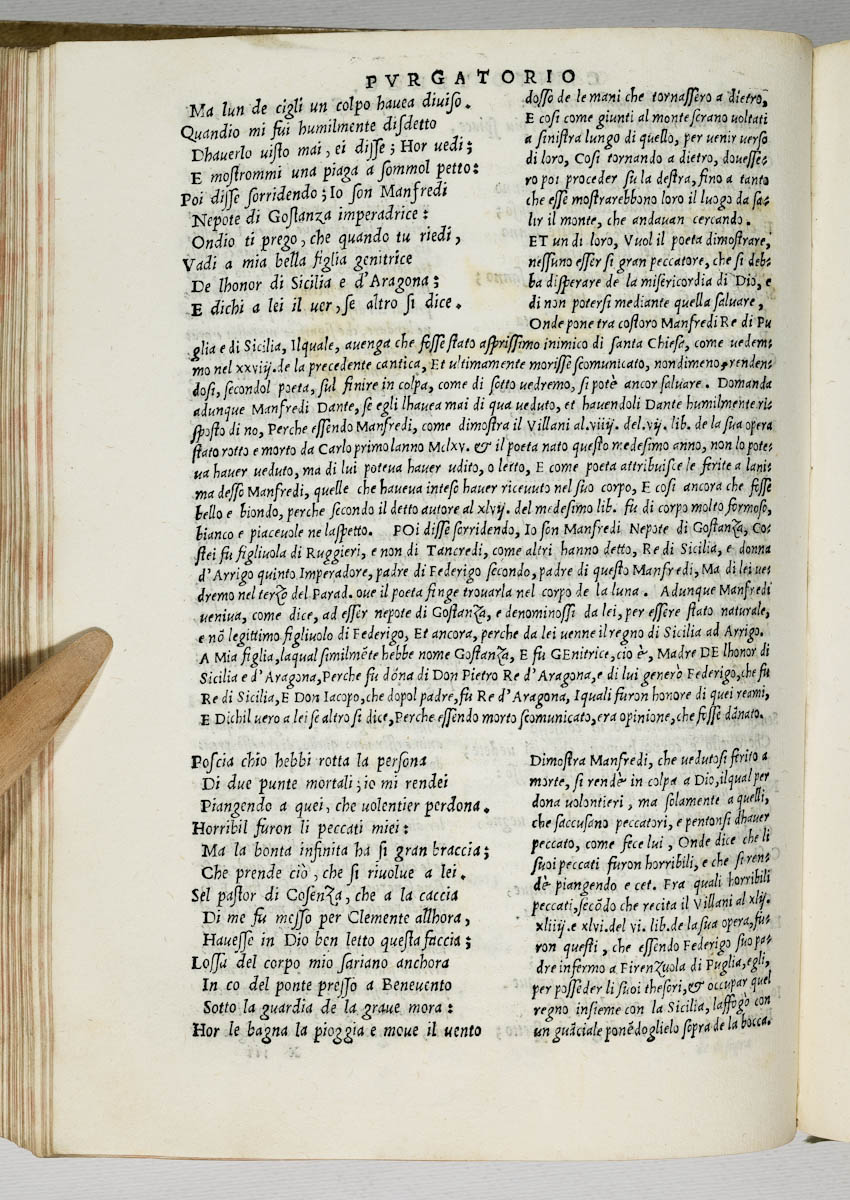 PVRGATORIO
Ma lun de cigli un colpo hauea diuiso.
Quandio mi fui humilmente disdetto
Dhauerlo uisto mai, ei disse; Hor uedi;
E mostrommi una piaga a sommol petto:
Poi disse sorridendo; Io son Manfredi
Nepote di Gostanza imperadrice:
Ondio ti prego, che quando tu riedi,
Vadi a mia bella figlia genitrice
De lhonor di Sicilia e d'Aragona;
E dichi a lei il uer, se altro si dice.
dosso de le mani che tornassero a dietro,
E cosi come giunti al monte serano uoltati
a sinistra lungo di quello, per uenir uerso
di loro, Cosi tornando a dietro, douesse-
ro poi proceder su la destra, fino a tanto
che esse mostrarebbono loro il luogo da sa-
lir il monte, che andauan cercando.
ET un di loro, Vuol il poeta dimostrare,
nessuno esser si gran peccatore, che si deb-
ba disperare de la misericordia di Dio, e
di non potersi mediante quella saluare,
Onde pone tra costoro Manfredi Re di Pu
glia e di Sicilia, Ilquale, auenga che fosse stato asprissimo inimico di santa Chiesa, come uedem-
mo nel xxviij. de la precedente cantica, Et ultimamente morisse scomunicato, nondimeno, renden-
dosi, secondol poeta, sul finire in colpa, come di sotto uedremo, si potè ancor saluare. Domanda
adunque Manfredi Dante, se egli lhauea mai di qua ueduto, et hauendoli Dante humilmente ri-
sposto di no, Perche essendo Manfredi, come dimostra il Villani al.viiij. del.vij. lib. de la sua opera
stato rotto e morto da Carlo primo lanno Mclxv. & il poeta nato questo medesimo anno, non lo pote-
ua hauer ueduto, ma di lui poteua hauer udito, o letto, E come poeta attribuisce le ferite a lani-
ma desso Manfredi, quelle che haueua inteso hauer riceuuto nel suo corpo, E cosi ancora che fosse
bello e biondo, perche secondo il detto autore al xlvij. del medesimo lib. fu di corpo molto formoso,
bianco e piaceuole ne laspetto. POi disse sorridendo, Io son Manfredi Nepote di Gostanza, Co-
stei fu figliuola di Ruggieri, e non di Tancredi, come altri hanno detto, Re di Sicilia, e donna
d'Arrigo quinto Imperadore, padre di Federigo secondo, padre di questo Manfredi, Ma di lei ue-
dremo nel terzo del Parad. oue il poeta finge trouarla nel corpo de la luna. Adunque Manfredi
ueniua, come dice, ad esser nepote di Gostanza, e denominossi da lei, per essere stato naturale,
e nõ legittimo figliuolo di Federigo, Et ancora, perche da lei uenne il regno di Sicilia ad Arrigo.
A Mia figlia, laqual similmẽte hebbe nome Gostanza, E fu GEnitrice, cio è, Madre DE lhonor di
Sicilia e d'Aragona, Perche fu dõna di Don Pietro Re d'Aragona, e di lui generò Federigo, che fu
Re di Sicilia, E Don Iacopo, che dopol padre, fu Re d'Aragona, I quali furon honore di quei reami,
E Dichil uero a lei se altro si dice, Perche essendo morto scomunicato, era opinione, che fosse dãnato.
Poscia chio hebbi rotta la persona
Di due punte mortali; io mi rendei
Piangendo a quei, che uolentier perdona.
Horribil furon li peccati miei:
Ma la bonta infinita ha si gran braccia;
Che prende ciò, che si riuolue a lei.
Sel pastor di Cosenza, che a la caccia
Di me fu messo per Clemente allhora,
Hauesse in Dio ben letto questa faccia;
Lossa del corpo mio sariano anchora
In co del ponte presso a Beneuento
Sotto la guardia de la graue mora:
Hor le bagna la pioggia e moue il uento
Dimostra Manfredi, che uedutosi ferito a
morte, si rendè in colpa a Dio, ilqual per
dona uolontieri, ma solamente a quelli,
che saccusano peccatori, e pentonsi dhauer
peccato, come fece lui, Onde dice che li
suoi peccati furon horribili, e che si ren-
dè piangendo e cet. Fra quali horribili
peccati, secõdo che recita il Villani al xlij.
xliiij. e xlvi. del vi. lib. de la sua opera, fu-
ron questi, che essendo Federigo suo pa-
dre infermo a Firenzuola di Puglia, egli,
per posseder li suoi thesori, & occupar quel
regno insieme con la Sicilia, laffogò con
un guãciale ponẽdoglielo sopra de la bocca.